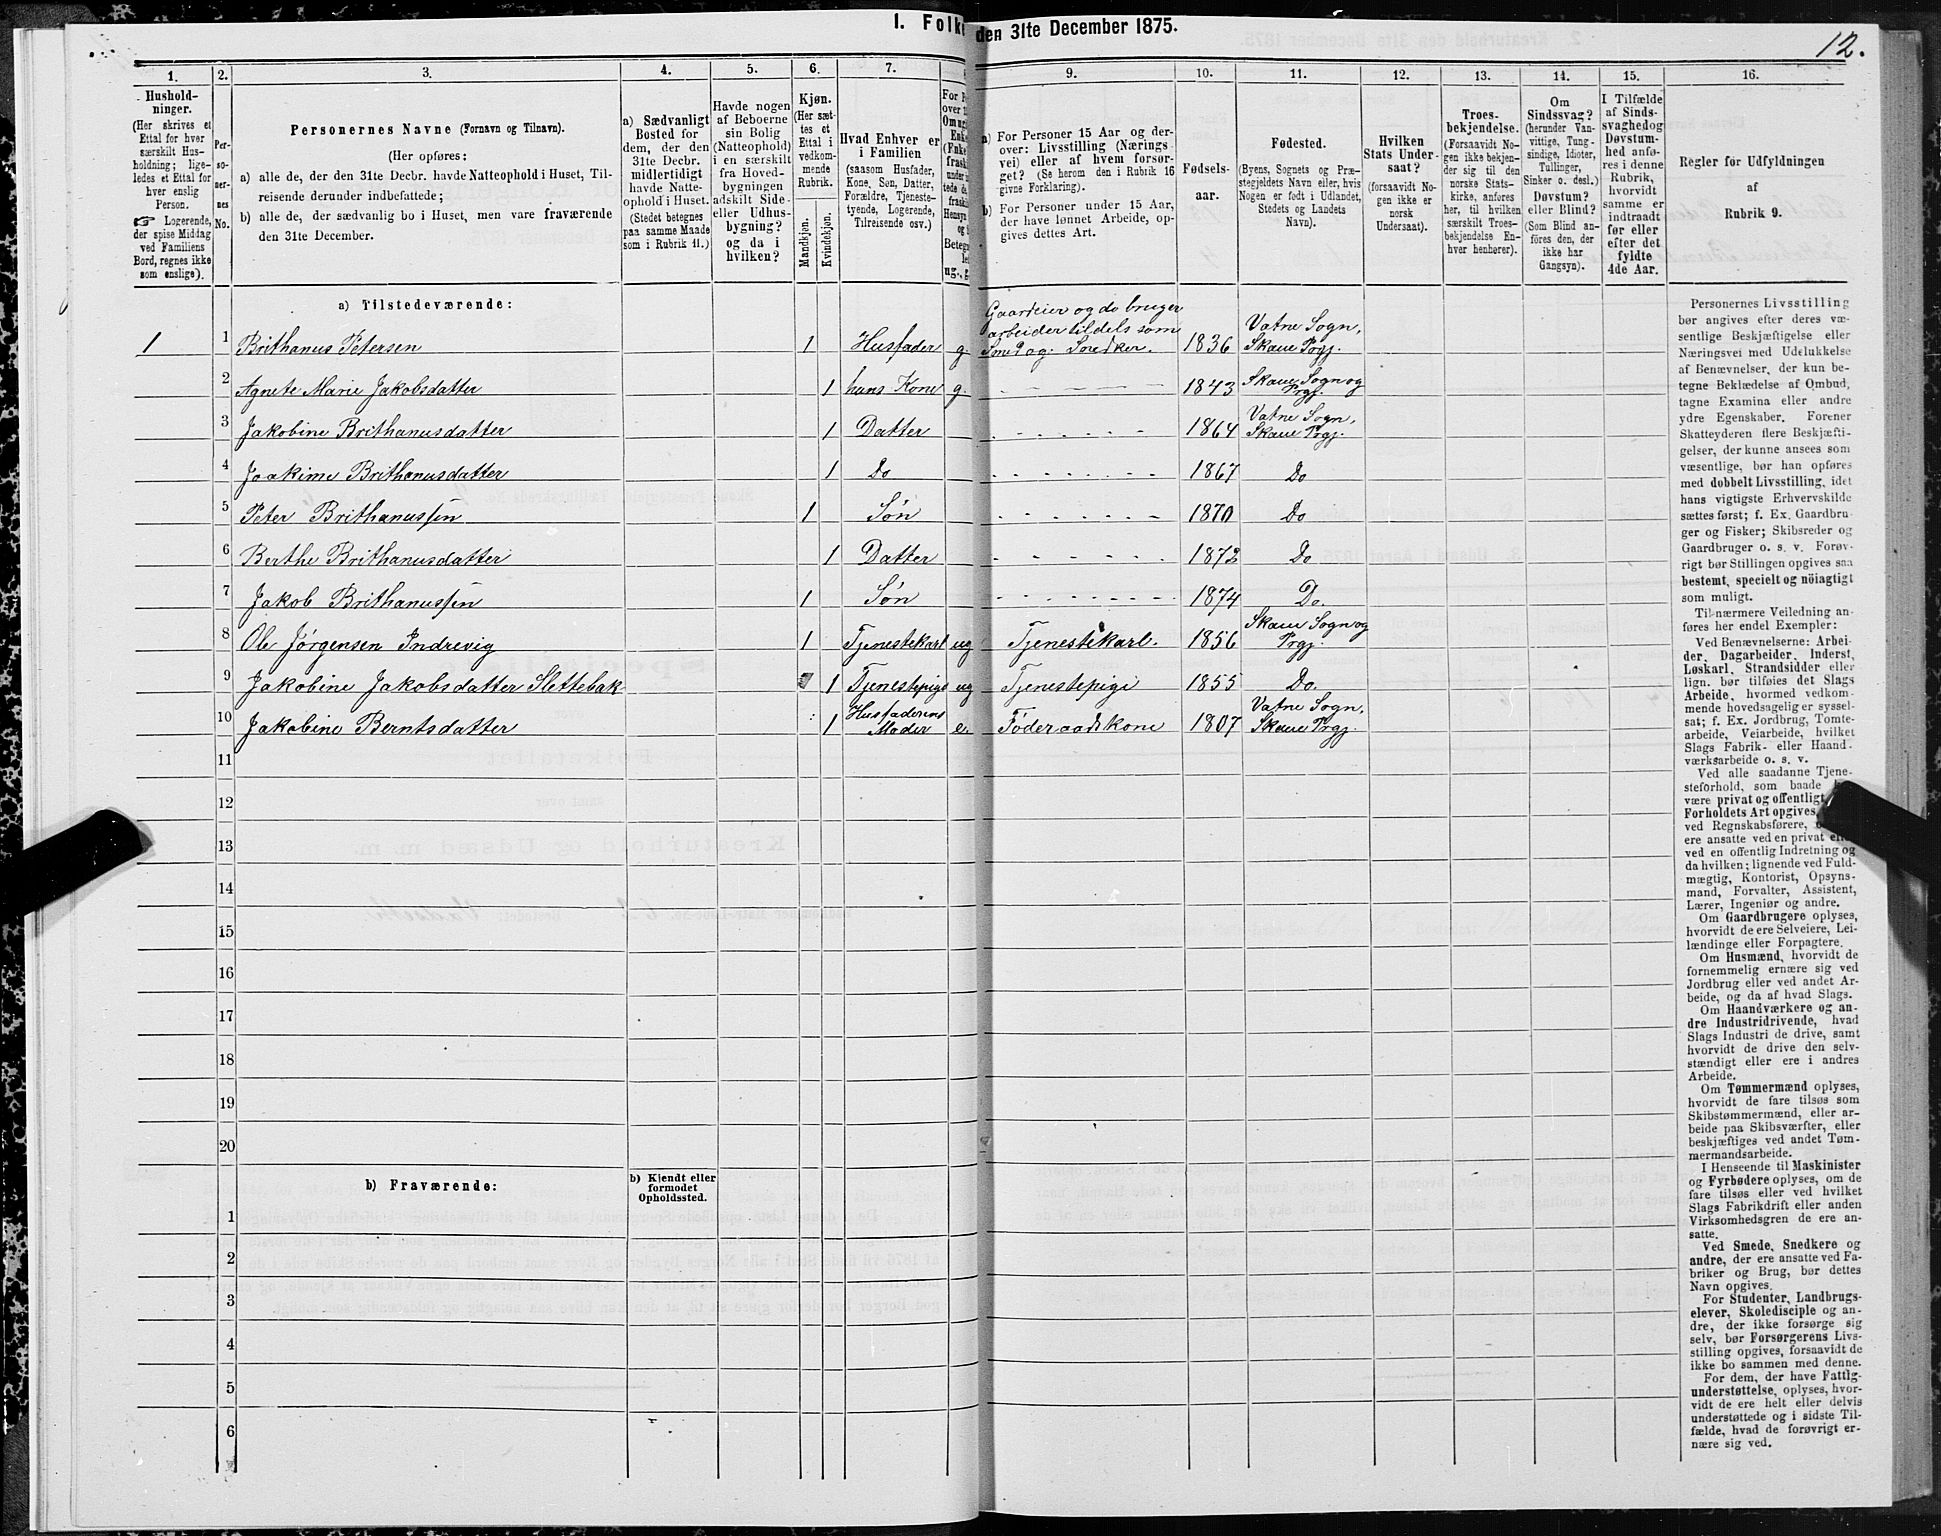 I. Folke
den 31te December 1875.
12.
1.
2.
3.
4.
5.
6.
7.
9.
10.
11.
12.
13.
14.
15.
16.
Hushold-
ninger.
(Her skrives et
Ettal for hver
særskilt Hus-
holdning; lige-
ledes et Ettal for
hver enslig
Person.
☞ Logerende,
der spise Middag
ved Familiens
Bord, regnes ikke
som enslige).
Per-
so-
ner-
nes
No.
Personernes Navne (Fornavn og Tilnavn).
(Her opføres:
a) alle de, der den 31te Decbr. havde Natteophold i Huset, Til-
reisende derunder indbefattede;
b) alle de, der sædvanlig bo i Huset, men vare fraværende
den 31te December.
a) Sædvanligt
Bosted for
dem, der den
31te Decbr.
midlertidigt
havde Natte-
ophold i Huset.
(Stedet betegnes
paa samme Maade
som i Rubrik 11.)
Havde nogen
af Beboerne
sin Bolig
(Natteophold)
i en særskilt
fra Hoved-
bygningen
adskilt Side-
eller Udhus-
bygning?
og da i
hvilken?
Kjøn.
(Her sæt-
tes et
Ettal i
vedkom-
mende
Rubrik.
Mandkjøn.
Kvindekjøn.
Hvad Enhver er
i Familien
(saasom Husfader,
Kone, Søn, Datter,
Forældre, Tjeneste-
tyende, Logerende,
Tilreisende osv.)
a) For Personer 15 Aar og der-
over: Livsstilling (Nærings-
vei) eller af hvem forsør-
get? (Se herom den i Rubrik 16
givne Forklaring).
b) For Personer under 15 Aar,
der have lønnet Arbeide, op-
gives dettes Art.
Fødsels-
aar.
Fødested.
(Byens, Sognets og Præ-
stegjeldets Navn eller, hvis
Nogen er født i Udlandet,
Stedets og Landets
Navn).
Hvilken
Stats Under-
saat?
(forsaavidt No-
gen ikke er
norsk
Undersaat).
Troes-
bekjendelse.
(Forsaavidt No-
gen ikke bekjen-
der sig til den
norske Stats-
kirke, anføres
her, til hvilken
særskilt Troes-
bekjendelse En-
hver henhører).
Om
Sindssvag?
(herunder Van-
vittige, Tung-
sindige, Idioter,
Tullinger,
Sinker o. desl.)
Døvstum?
eller Blind?
(Som Blind an-
føres den, der
ikke har
Gangsyn).
I Tilfælde
af Sinds-
svaghed og
Døvstum-
hed anfø-
res i denne
Rubrik,
hvorvidt
samme er
indtraadt
før eller
efter det
fyldte
4de Aar.
Regler før Udfyldningen
af
Rubrik 9.
a) Tilstedeværende:
1 1 Brithanus Petersen 1 Husfader g. Gaardeier og do bruger arbeider tildels som Smed og Snedker. 1836 Vatne Sogn, Skaue Prgj.
2 Agnete Marie Jakobsdatter 1 hans Kone g. - - - - - 1843 Skaue Sogn og Prgj.
3 Jakobine Brithanusdatter 1 Datter - - - - - 1864 Vatne Sogn, Skaue Prgj.
4 Joakime Brithanusdatter 1 Do - - - - - 1867 Do
5 Peter Brithanussen 1 Søn - - - - - 1870 Do
6 Berthe Brithanusdatter 1 Datter - - - - - 1872 Do
7 Jakob Brithanussen 1 Søn - - - - - 1874 Do.
8 Ole Jørgensen Indrevig 1 Tjenestekarl ug Tjenestekarl. 1856 Skaue Sogn og Prgj.
9 Jakobine Jakobsdatter Slettebak 1 Tjenestepige ug Tjenestepige 1855 Do.
10 Jakobine Berntsdatter 1 Husfaderens Moder e. Føderaadskone 1807 Vatne Sogn, Skaue Prgj.
11
12
13
14
15
16
17
18
19
20
b) Fraværende:
b) Kjendt eller
formodet
Opholdssted.
1
2
3
4
5
6
Personernes Livsstilling
bør angives efter deres væ-
sentlige Beskjæftigelse eller
Næringsvei med Udelukkelse
af Benævnelser, der kun be-
tegne Beklædelse af Ombud,
tagne Examina eller andre
ydre Egenskaber. Forener
Skatteyderen flere Beskjæfti-
gelser, der kunne ansees som
væsentlige, bør han opføres
med dobbelt Livsstilling, idet
hans vigtigste Erhvervskilde
sættes først; f. Ex. Gaardbru-
ger og Fisker; Skibsreder og
Gaardbruger o. s. v. Forøv-
rigt bør Stillingen opgives saa
bestemt, specielt og nöiagtigt
som muligt.
Til nærmere Veiledning an-
føres her endel Exempler:
Ved Benævnelserne: Arbei-
der, Dagarbeider, Inderst,
Løskarl, Strandsidder eller
lign. bør tilføies det Slags
Arbeide, hvormed vedkom-
mende hovedsagelig er syssel-
sat; f. Ex. Jordbrug, Tomte-
arbeide, Veiarbeide, hvilket
Slags Fabrik- eller Haand-
værksarbeide o. s. v.
Ved alle saadanne Tjene-
steforhold, som baade
være privat og offentligt,
Forholdets Art opgives,
ved Regnskabsførere,
ere ansatte ved en privat
ved en offentlig Indretning og
da hvilken; lignende ved Fuld-
mægtig, Kontorist, Opsyns-
mand, Forvalter, Assistent,
Lærer, Ingeniør og andre.
Om Gaardbrugere oplyses,
hvorvidt de ere Selveiere, Lei-
lændinge eller Forpagtere.
Om Husmænd, hvorvidt de
fornemmelig ernære sig ved
Jordbrug eller ved andet Ar-
beide, og da af hvad Slags.
Om Haandværkere og an-
dre Industridrivende, hvad
Slags Industri de drive, samt
hvorvidt de drive den selv-
stændigt eller ere i andres
Arbeide.
Om Tømmermænd oplyses,
hvorvidt de fare tilsøs som
Skibstømmermænd, eller ar-
beide paa Skibsværfter, eller
beskjæftiges ved andet Tøm-
mermandsarbeide.
I Henseende til Maskinister
og Fyrbødere oplyses, om de
fare tilsøs eller ved hvilket
Slags Fabrikdrift eller anden
Virksomhedsgren de ere an-
satte.
Ved Smede, Snedkere og
andre, der ere ansatte ved Fa-
briker og Brug, bør dettes
Navn opgives.
For Studenter, Landbrugs-
elever, Skoledisciple og an-
dre, der ikke forsørge sig
selv, bør Forsørgerens Livs-
stilling opgives, forsaavidt de
ikke bo sammen med denne.
For dem, der have Fattig-
understøttelse, oplyses, hvor-
vidt de ere helt eller delvis
understøttede og i sidste Til-
fælde, hvad de forøvrigt er-
nære sig ved.